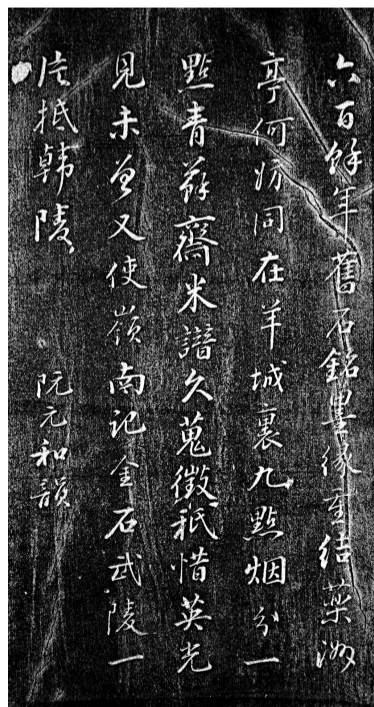 六百餘年舊石銘墨緣重結藥洲
亭何妨同在羊城裏九點烟分一
點青蘇齋米譜久蒐徵秖惜英光
見未曾又使嶺南記金石武陵一
片抵韓陵 阮元和韻